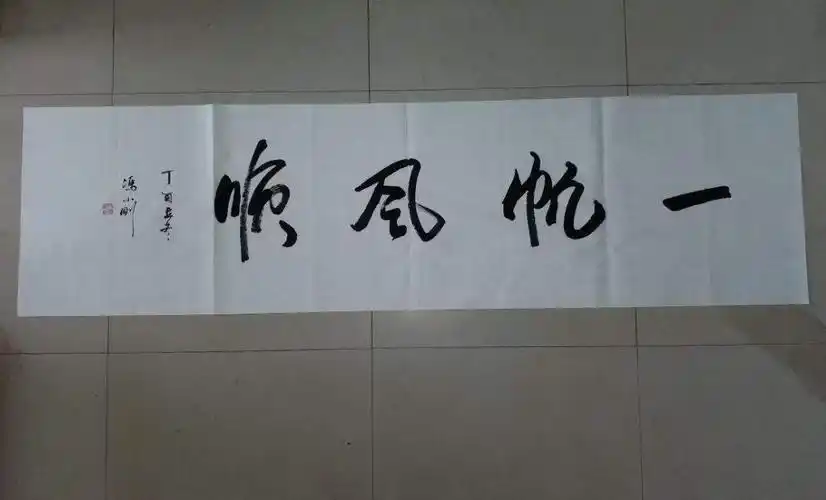 一帆风顺
丁酉
冯小刚